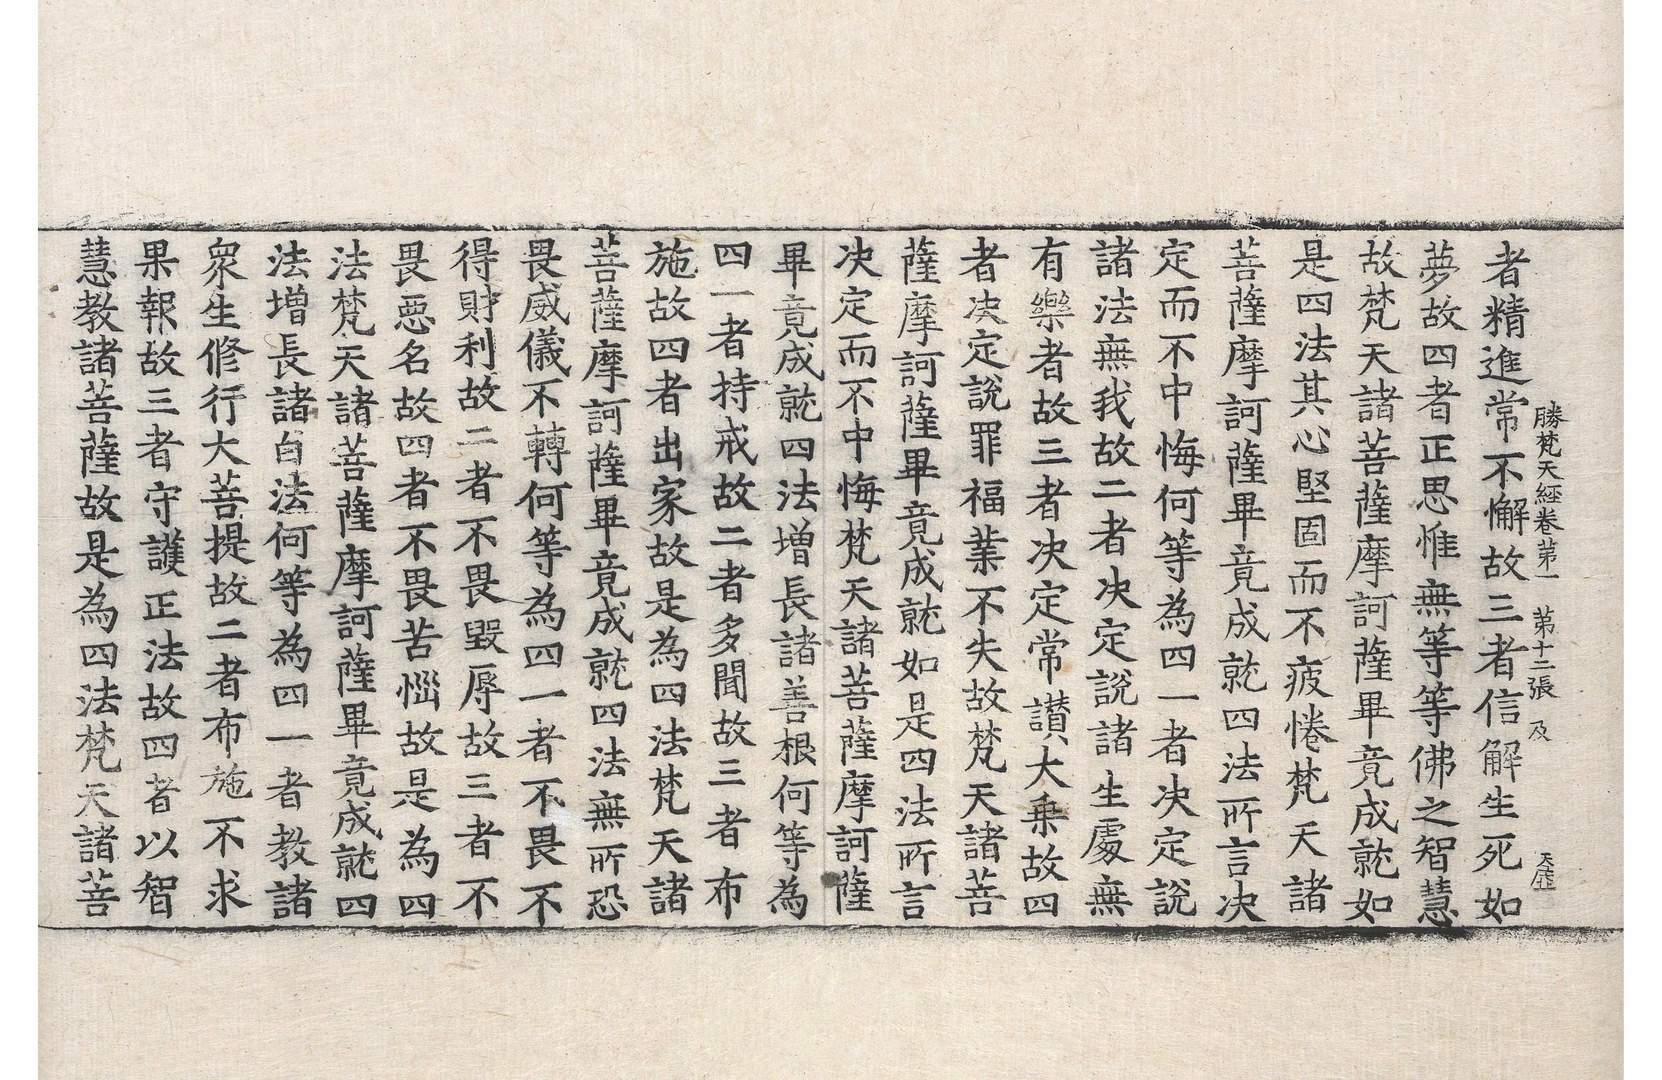 勝梵天經卷第一 第十二張 及
者精進常不懈故三者信解生死如
夢故四者正思惟無等等佛之智慧
故梵天諸菩薩摩訶薩畢竟成就如
是四法其心堅固而不疲惓梵天諸
菩薩摩訶薩畢竟成就四法所言决
定而不中悔何等為四一者决定說
諸法無我故二者决定說諸生處無
有樂者故三者决定常讃大乗故四
者决定說罪福業不失故梵天諸菩
薩摩訶薩畢竟成就如是四法所言
决定而不中悔梵天諸菩薩摩訶薩
畢竟成就四法增長諸善根何等為
四一者持戒故二者多聞故三者布
施故四者出家故是為四法梵天諸
菩薩摩訶薩畢竟成就四法無所恐
畏威儀不轉何等為四一者不畏不
得財利故二者不畏毀辱故三者不
畏惡名故四者不畏苦惱故是為四
法梵天諸菩薩摩訶薩畢竟成就四
法增長諸白法何等為四一者教諸
衆生修行大菩提故二者布施不求
果報故三者守護正法故四者以智
慧教諸菩薩故是為四法梵天諸菩